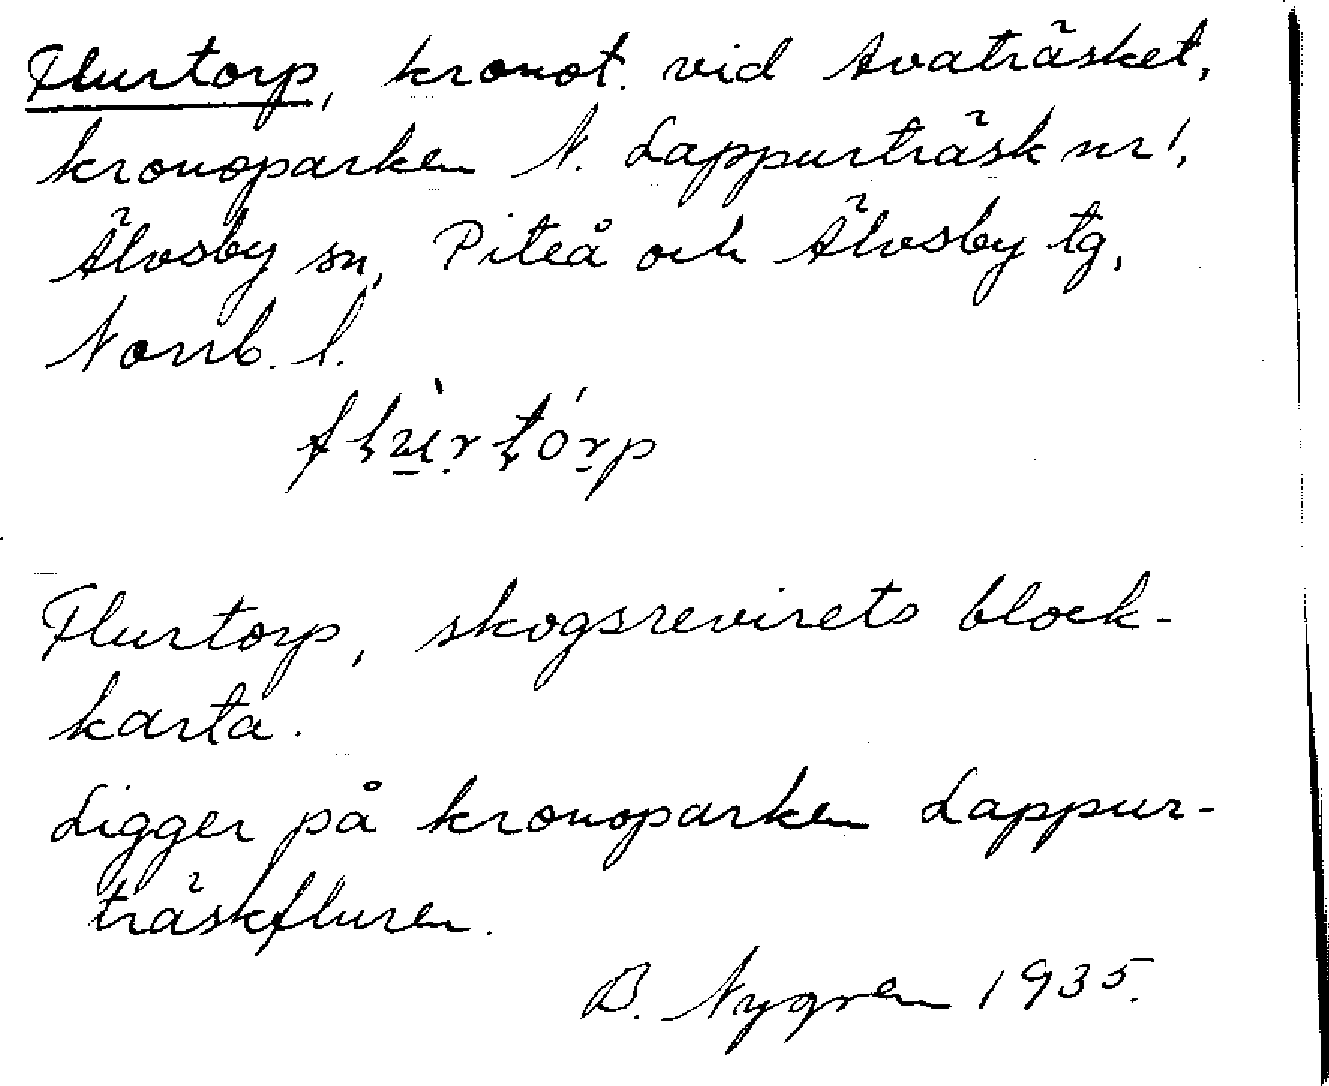 Flurtorp, kronot. vid Avaträsket,
kronoparken N. Lappurträsk nr 1,
Älvsby sn, Piteå och Älvsby tg,
Norrb. l.
Flurtorp, skogsrevirets block-
karta.
Ligger på kronoparken Lappur-
träskfluren.
B. Nygren 1935.